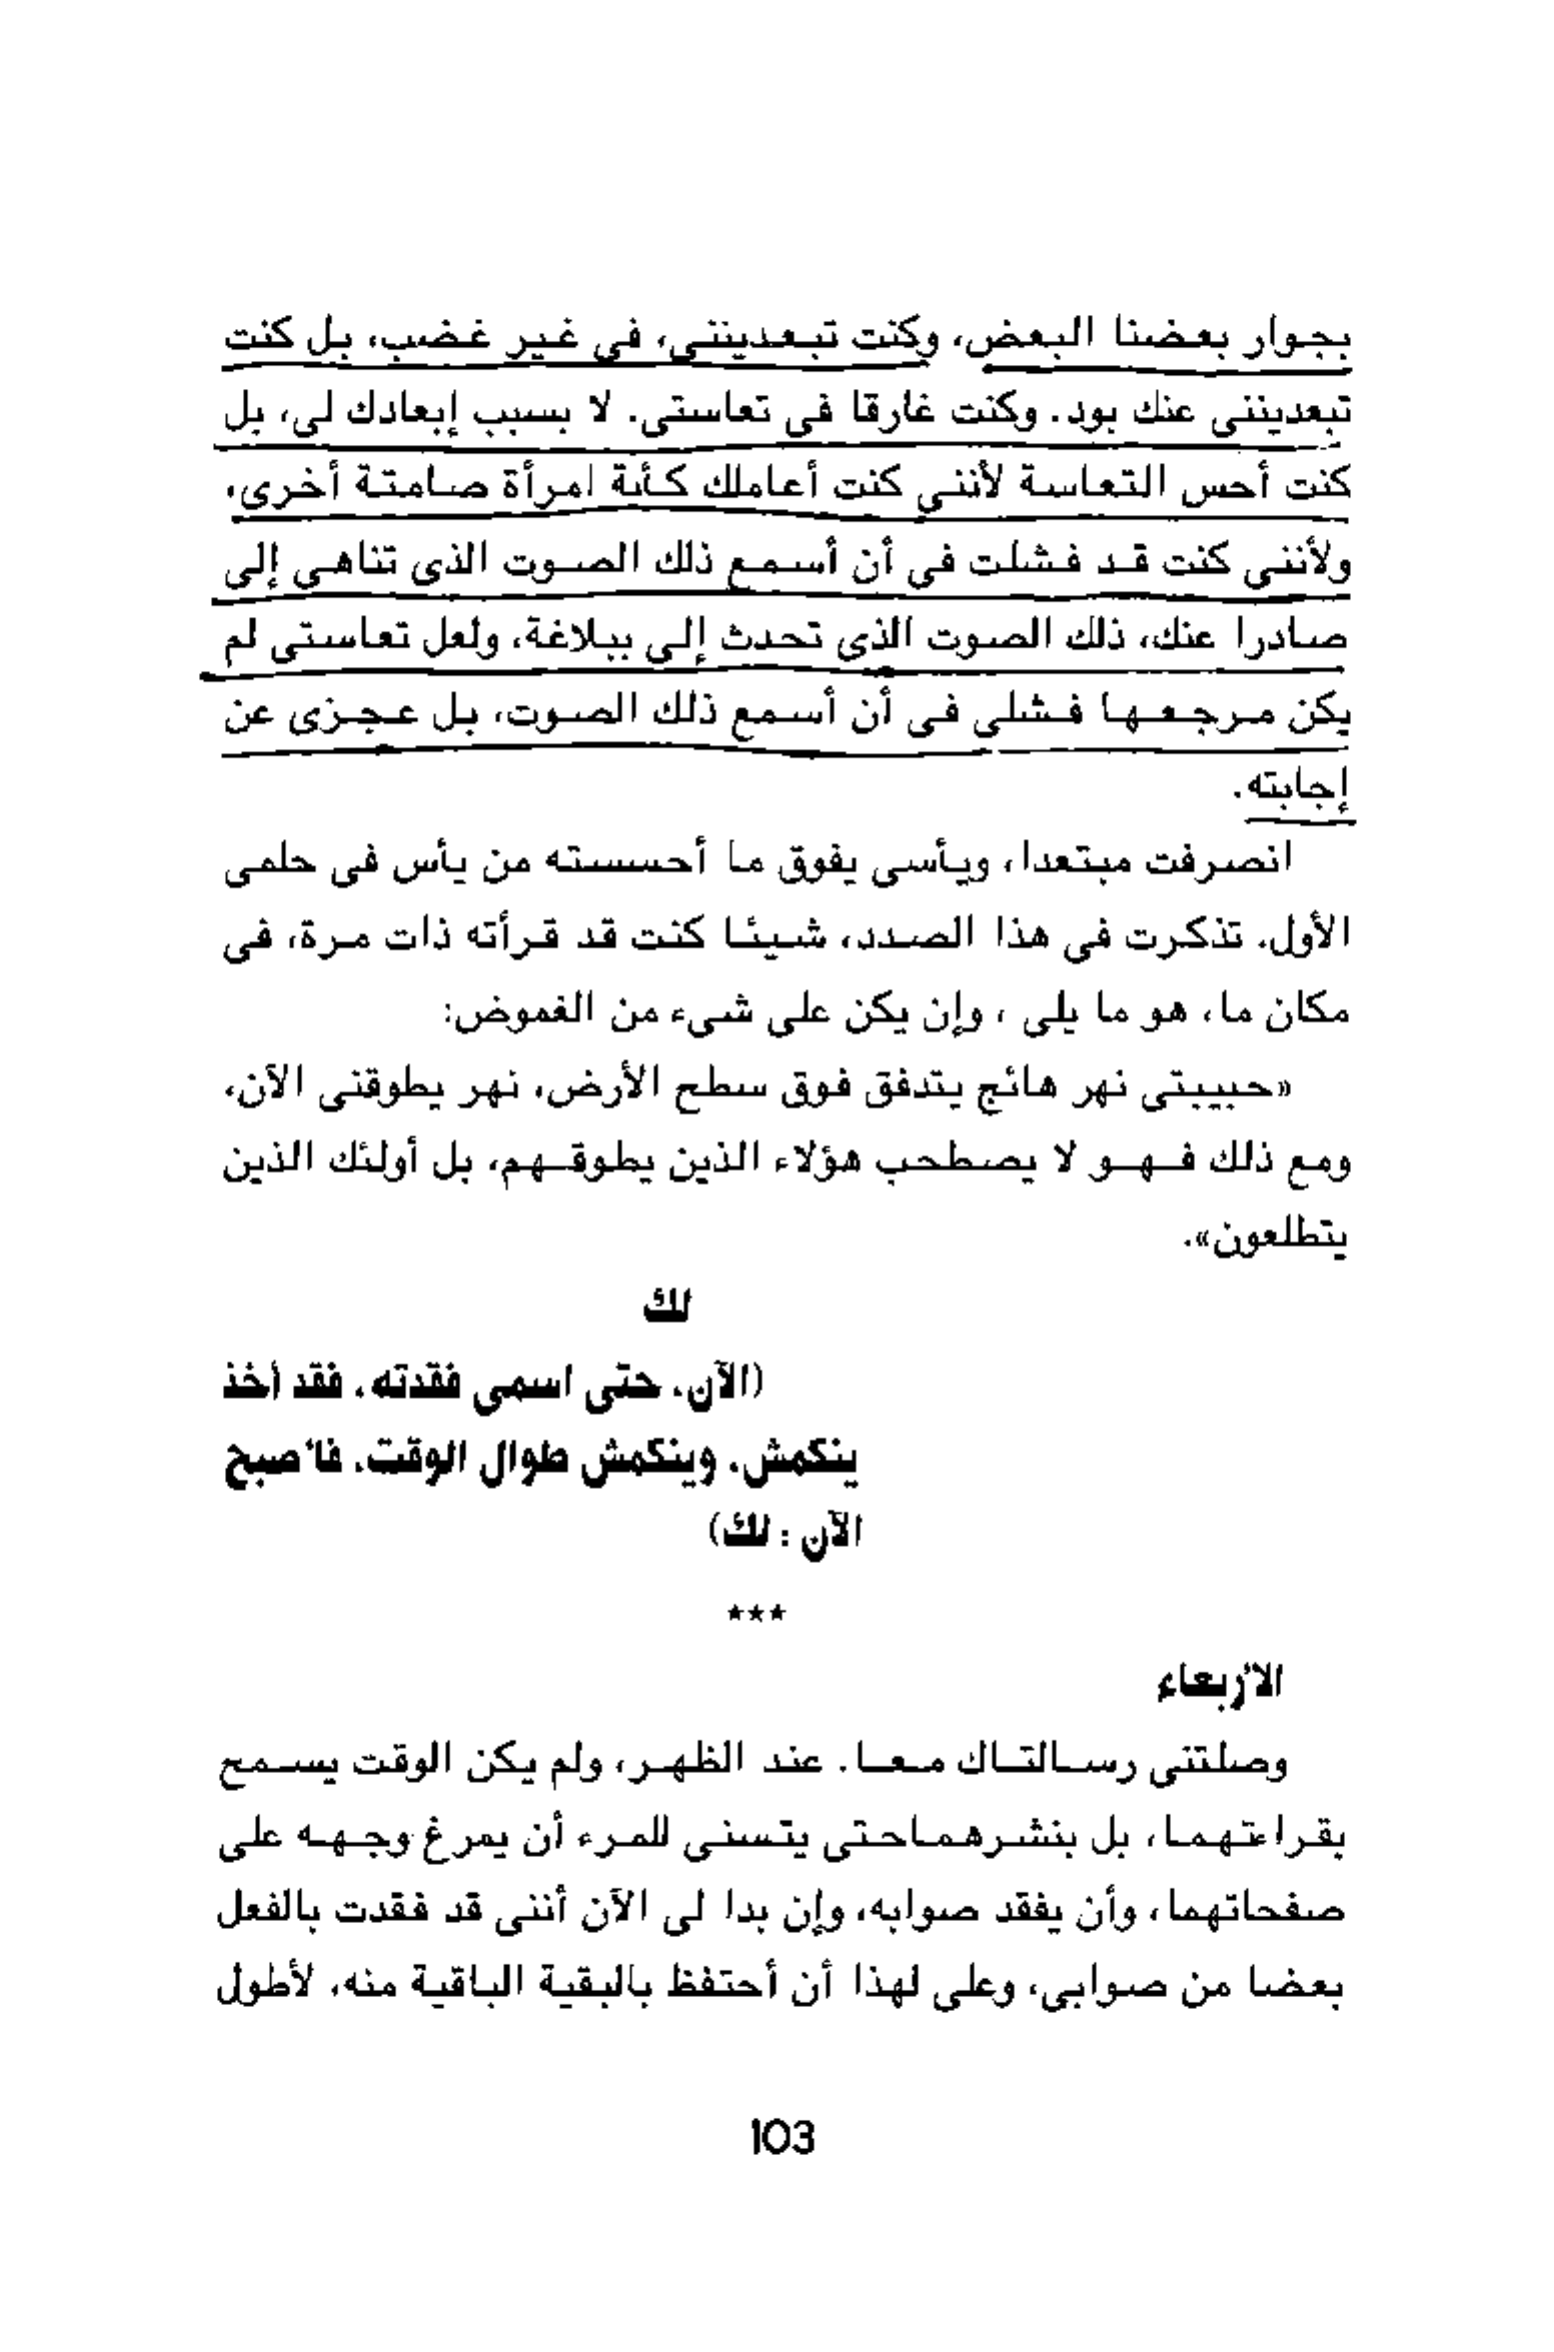 بجوار بعضنا البعض، وكنت تبعديننى، فى غير غضب، بل كنت
تبعديننى عنك بود. وكنت غارقا فى تعاستى. لا بسبب إبعادك لى، بل
كنت أحس التعاسة لأننى كنت أعاملك كأية امرأة صامتة أخرى،
ولأننى كنت قد فشلت فى أن أسمع ذلك الصوت الذى تناهى إلى
صادرا عنك، ذلك الصوت الذى تحدث إلى ببلاغة، ولعل تعاستى لم
يكن مرجعها فشلى فى أن أسمع ذلك الصوت، بل عجزى عن
إجابته.
انصرفت مبتعدا، ويأسى يفوق ما أحسسته من يأس فى حلمى
الأول. تذكرت فى هذا الصدد، شيئا كنت قد قرأته ذات مرة، فى
مكان ما، هو ما يلى ، وإن يكن على شىء من الغموض:
«حبيبتى نهر هائج يتدفق فوق سطح الأرض، نهر يطوقنى الآن،
ومع ذلك فهو لا يصطحب هؤلاء الذين يطوقهم، بل أولئك الذين
يتطلعون».
لك
(الآن، حتى اسمى فقدته، فقد أخذ
ينكمش، وينكمش طوال الوقت، فأصبح
الآن : لك)
***
الأربعاء
وصلتنى رسالتاك معا. عند الظهر، ولم يكن الوقت يسمح
بقراءتهما، بل بنشرهماحتى يتسنى للمرء أن يمرغ وجهه على
صفحاتهما، وأن يفقد صوابه، وإن بدا لى الآن أننى قد فقدت بالفعل
بعضا من صوابى، وعلى لهذا أن أحتفظ بالبقية الباقية منه، لأطول
103